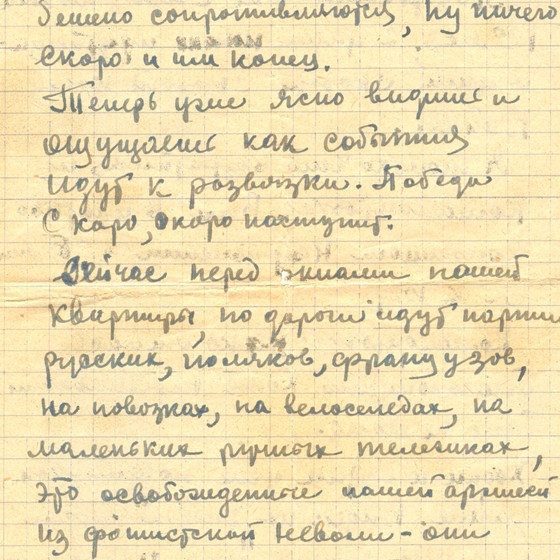 бешено сопротивляются, ну ничего
скоро и им конец.
Теперь уже ясно видим и
ощущаем как события
идут к розвязки. Победа
Скоро, скоро наступит.
Сейчас перед окнами нашей
квартиры, по дороги идут партии
русских, поляков, французов,
на повозках, на велоседах, на
маленьких ручных тележках,
это освобожденные нашей армией
из фашистской неволи - они